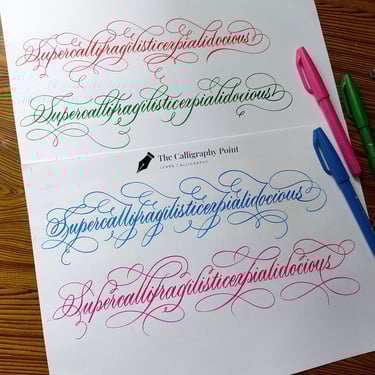 Supercallifragilisticexpialidocious
Supercallifragilisticexpialidocious
The Calligraphy Point
LEARN CALLIGRAPHY
Supercallifragilisticexpialidocious
Supercallifragilisticexpialidocious